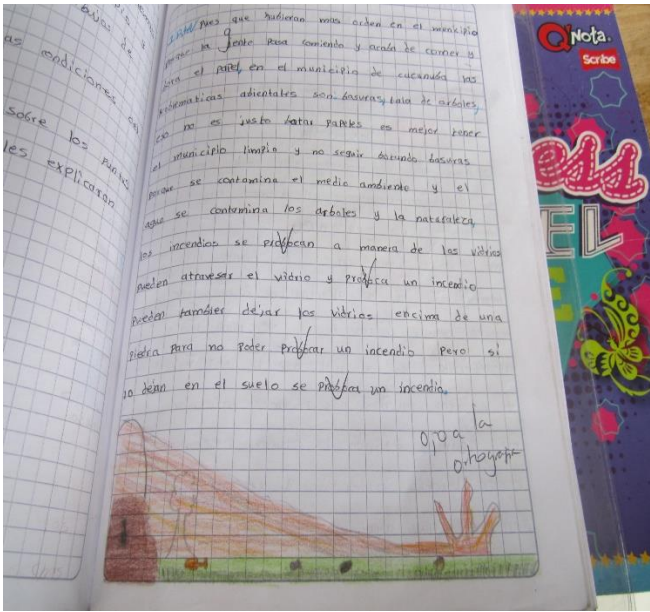 sobre los puntos
les explicaran
pues que hubieran mas orden en el municipio
porque la gente pasa comiendo y acaba de comer y
tira el papel, en el municipio de cucunuba las
problematicas abientales son basuras, tala de arboles,
eso no es justo botar papeles es mejor tener
el municipio limpio y no seguir botando basuras
porque se contamina el medio ambiente y el
agua se contamina los arboles y la naturaleza,
los incendios se a manera de los vidrios
pueden atravesar el vidrio y un incendio
pueden tambien dejar los vidrios encima de una
piedra para no poder un incendio pero si
lo dejan en el suelo se un incendio.
ojo a la
ortografia
Q'Nota.
Scribe
ess
EL